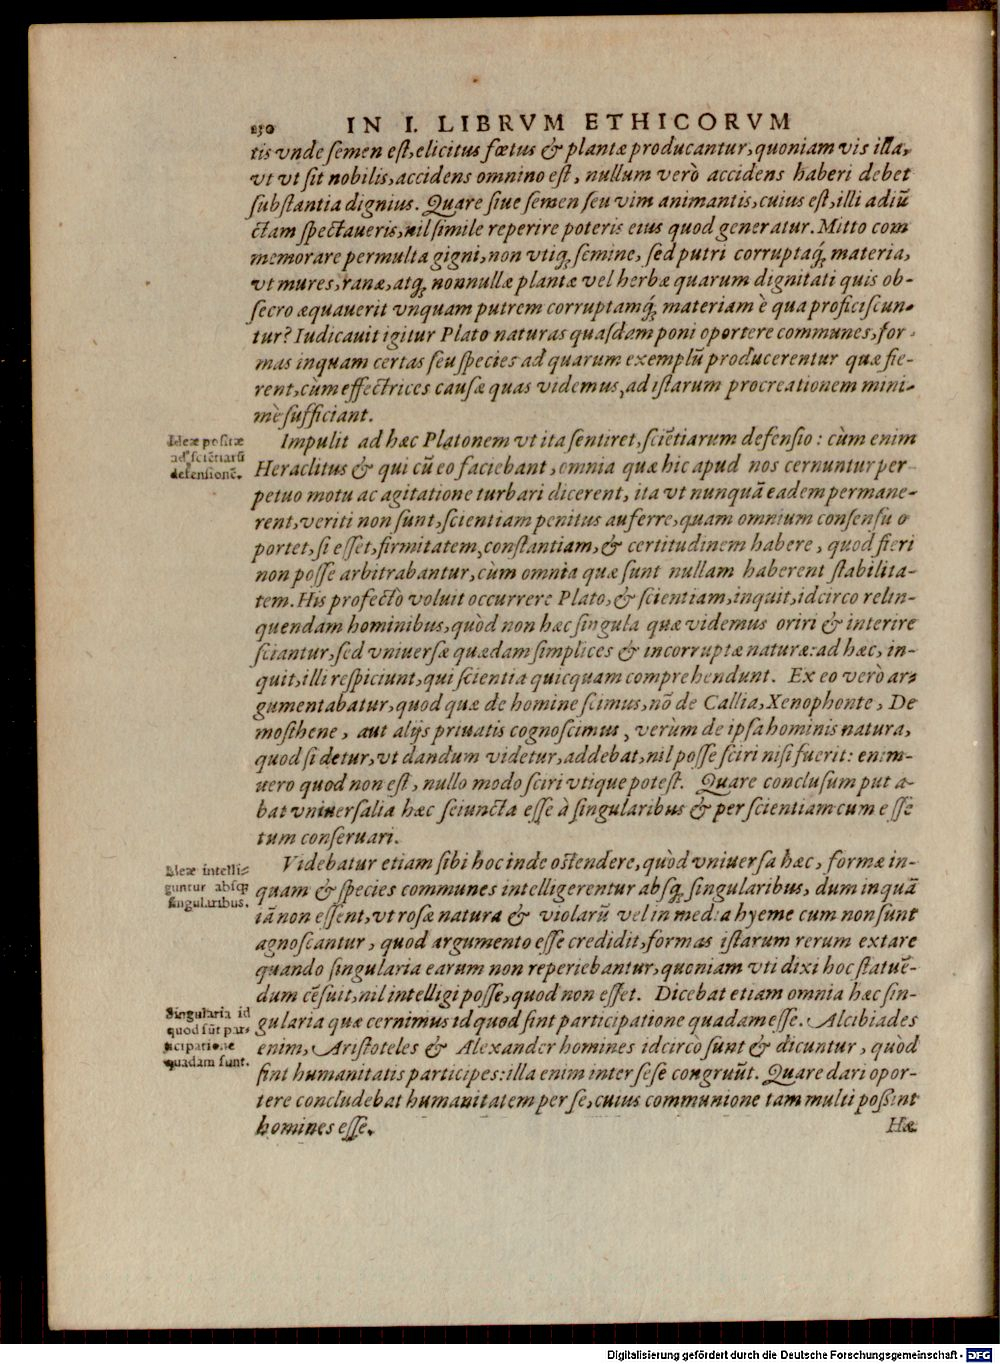 230 IN I. LIBRVM ETHICORVM
tis vnde semen est, elicitus fœtus & plantæ producantur, quoniam vis illa,
vt vt sit nobilis, accidens omnino est, nullum verò accidens haberi debet
substantia dignius. Quare siue semen seu vim animantis, cuius est, illi adiũ
ctam spectaueris, nil simile reperire poteris eius quod generatur. Mitto com
memorare permulta gigni, non vtiq; semine, sed putri corruptaq́; materia,
vt mures, ranæ, atq; nonnullæ plantæ vel herbæ quarum dignitati quis ob-
secro æquauerit vnquam putrem corruptamq́; materiam è qua proficiscun-
tur? Iudicauit igitur Plato naturas quasdam poni oportere communes, for-
mas inquam certas seu species ad quarum exemplũ producerentur quæ fie-
rent, cùm effectrices causæ quas videmus, ad istarum procreationem mini-
mè sufficiant.
Ideæ positæ
ad sciẽtiarũ
defensionẽ.
Impulit ad hæc Platonem vt ita sentiret, sciẽtiarum defensio: cùm enim
Heraclitus & qui cũ eo faciebant, omnia quæ hic apud nos cernuntur per-
petuo motu ac agitatione turbari dicerent, ita vt nunquã eadem permane-
rent, veriti non sunt, scientiam penitus auferre, quam omnium consensu o
portet, si esset, firmitatem, constantiam, & certitudinem habere, quod fieri
non posse arbitrabantur, cùm omnia quæ sunt nullam haberent stabilita-
tem. His profectò voluit occurrere Plato, & scientiam, inquit, idcirco relin-
quendam hominibus, quòd non hæc singula quæ videmus oriri & interire
sciantur, sed vniuersæ quædam simplices & incorruptæ naturæ: ad hæc, in-
quit, illi respiciunt, qui scientia quicquam comprehendunt. Ex eo verò ar-
gumentabatur, quod quæ de homine scimus, nõ de Callia, Xenophonte, De
mosthene, aut alijs priuatis cognoscimus, verùm de ipsa hominis natura,
quod si detur, vt dandum videtur, addebat, nil posse sciri nisi fuerit: enim-
uero quod non est, nullo modo sciri vtique potest. Quare conclusum puta-
bat vniuersalia hæc seiuncta esse à singularibus & per scientiam cum esse
tum conseruari.
Ideæ intelli-
guntur absq;
singularibus.
Videbatur etiam sibi hoc inde ostendere, quòd vniuersa hæc, formæ in-
quam & species communes intelligerentur absq; singularibus, dum inquã
iã non essent, vt rosæ natura & violarũ vel in media hyeme cum non sunt
agnoscantur, quod argumento esse credidit, formas istarum rerum extare
quando singularia earum non reperiebantur, quoniam vti dixi hoc statuẽ-
dum cẽsuit, nil intelligi posse, quod non esset. Dicebat etiam omnia hæc sin-
Singularia id
quod sũt par-
ticipatione
quadam sunt.
gularia quæ cernimus id quod sint participatione quadam esse. Alcibiades
enim, Aristoteles & Alexander homines idcirco sunt & dicuntur, quòd
sint humanitatis participes: illa enim inter sese congruũt. Quare dari opor-
tere concludebat humanitatem per se, cuius communione tam multi possint
homines esse.
Hæ
Digitalisierung gefördert durch die Deutsche Forschungsgemeinschaft - DFG